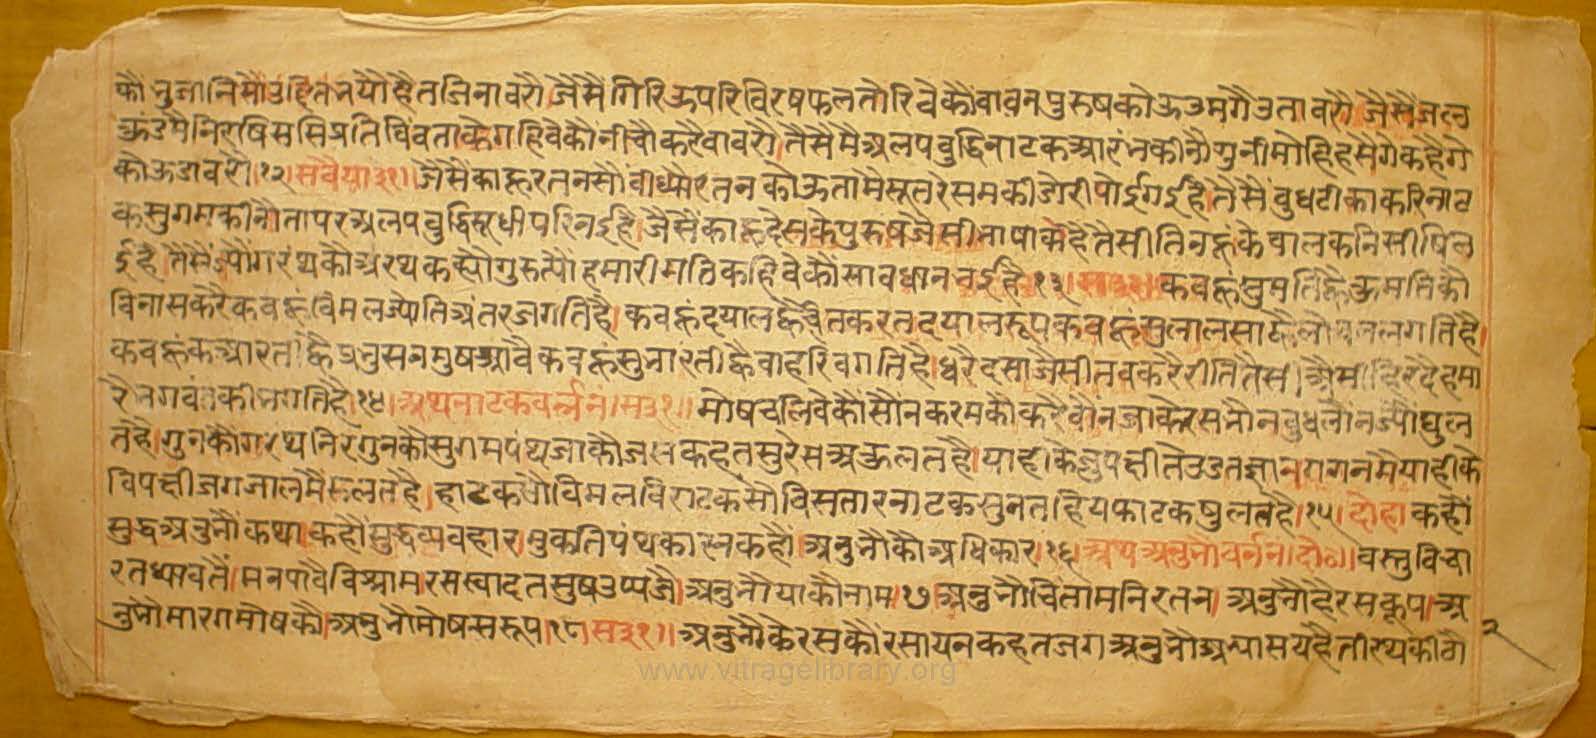 कौं भुजानिसौं उद्दित भयौ है तजि नावरौ। जैसैं गिरि ऊपरि विरषफल तोरिवेकौं वावन पुरुष कोऊ उमगै उतावरौ। जैसैं जल
कुंडमै निरषि ससि प्रतिविंव ताके गहिवेकौं नीचौ करै वावरौ। तैसैं मै अलपवुद्धि नाटक आरंभ कीनौ गुनी मोहि हसैंगे कहैंगे
कोऊ डावरौ।१२। सवैया ३१। जैसैं काहू रतनसौं वीध्यो रतन कोऊ तामै सूत रेसमकी डोरी पोई गई है। तैसैं वुध टीका करि नाट
क सुगम कीनौ तापर अलपवुद्धि सूधी परिनई है। जैसैं काहू देसके पुरुष जैसी भाषा कहै तैसी तिनहूंके वालकनि सीषि ल
ई है। तैसैं ज्यौं गरंथकौ अरथ कह्यौ गुरु त्यौं हमारी मति कहिवेकौं सावधान भई है।१३। स३१। कवहूं सुमति ह्वै कुमतिकौ
विनास करै कवहूं विमल ज्योति अंतर जगति है। कवहूं दयाल ह्वै चित करत दयालरूप कवहूं सुलालसा ह्वै लोचन लगति है।
कवहूं क आरती ह्वै प्रभु सनमुष आवै कवहूं सुभारती ह्वै वाहरि वगति है। धरै दसा जैसी तव करै रीति तैसी ऐसी हिरदै हमा
रै भगवंतकी भगति है।१४। अथ नाटक वर्नन। स३१।। मोष चलिवेकौं सौन करमकौ करै वौन जाके रस भौन वुध लौन ज्यौं घुल
त है। गुनकौ गरंथ निरगुनकौ सुगम पंथ जाकौ जस कहत सुरेस अकुलत है। याहीके जुपक्षी ते उडत ज्ञानगगनमै याहीके
विपक्षी जगजालमै रुलत है। हाटकसौ विमल विराटकसौ विसतार नाटक सुनत हिय फाटक षुलत है।१५। दोहा कहौं
सुद्ध अनुभौ कथा। कहौं सुद्ध व्यवहार। मुकतिपंथ कारन कहौं। अनुभौकौ अधिकार।१६। अथ अनुभौ वर्नन। दो०। वस्तु विचा
रत ध्यावतैं। मन पावै विश्राम। रस स्वादत सुष उप्पजै। अनुभौ याकौ नाम।१७। अनुभौ चिंतामनि रतन। अनुभौ है रसकूप। अ
नुभौ मारग मोषकौ। अनुभौ मोषसरूप।१८। स३१।। अनुभौके रसकौं रसायन कहत जग अनुभौ अभ्यास यहै तीरथकी ठौ
२
www.vitragelibrary.org